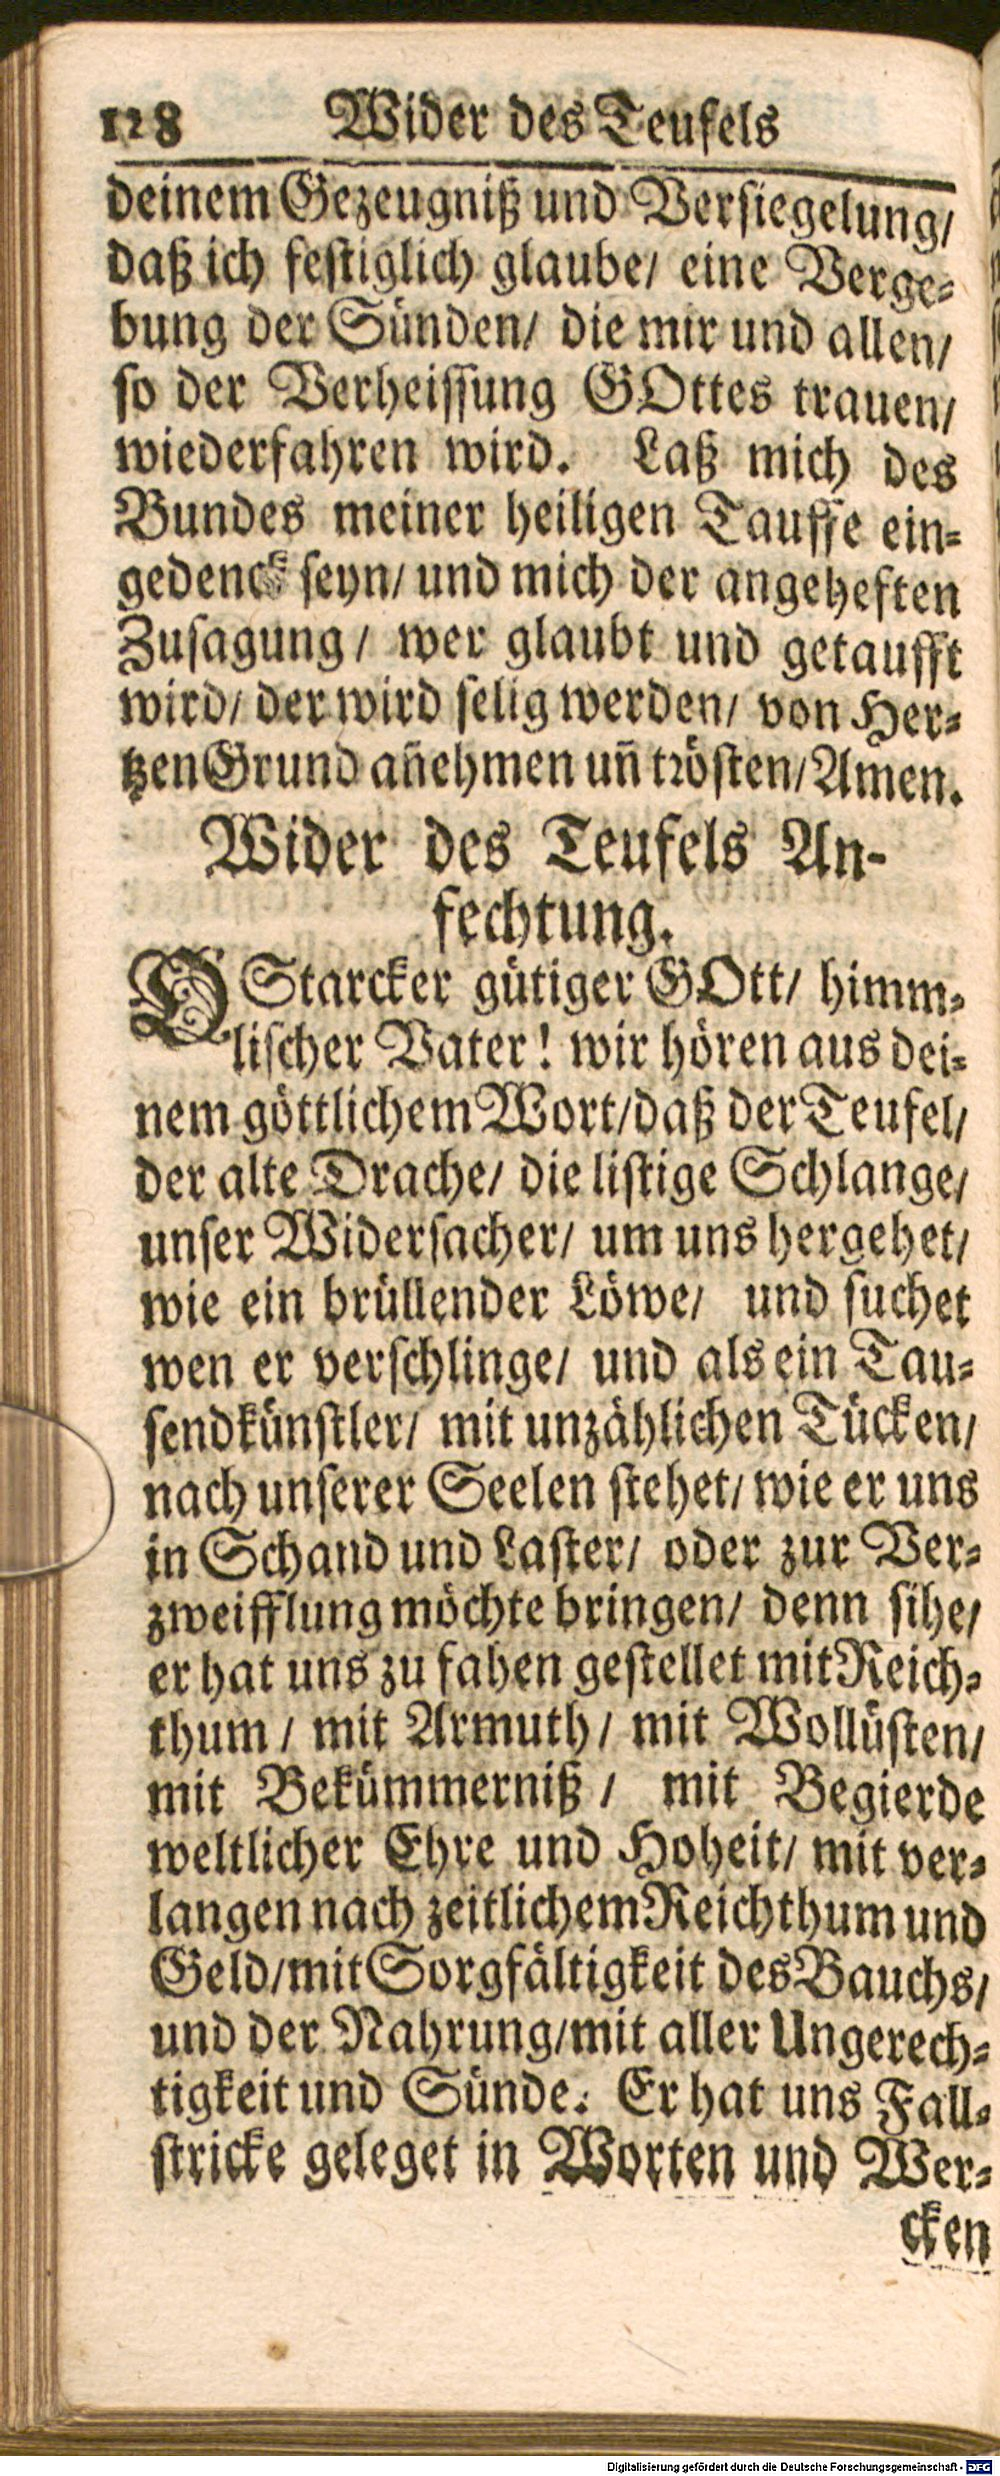 128 Wider des Teufels
deinem Gezeugniß und Versiegelung/
daß ich festiglich glaube/ eine Verge-
bung der Sünden/ die mir und allen/
so der Verheissung GOttes trauen/
wiederfahren wird. Laß mich des
Bundes meiner heiligen Tauffe ein-
gedenck seyn/ und mich der angeheften
Zusagung/ wer glaubt und getaufft
wird/ der wird selig werden/ von Her-
tzen Grund añehmen uñ trösten/ Amen.
Wider des Teufels An-
fechtung.
O Starcker gütiger GOtt/ himm-
lischer Vater! wir hören aus dei-
nem göttlichem Wort/ daß der Teufel/
der alte Drache/ die listige Schlange/
unser Widersacher/ um uns hergehet/
wie ein brüllender Löwe/ und suchet
wen er verschlinge/ und als ein Tau-
sendkünstler/ mit unzählichen Tücken/
nach unserer Seelen stehet/ wie er uns
in Schand und Laster/ oder zur Ver-
zweifflung möchte bringen/ denn sihe/
er hat uns zu fahen gestellet mit Reich-
thum/ mit Armuth/ mit Wollüsten/
mit Bekümmerniß/ mit Begierde
weltlicher Ehre und Hoheit/ mit ver-
langen nach zeitlichem Reichthum und
Geld/ mit Sorgfältigkeit des Bauchs/
und der Nahrung/ mit aller Ungerech-
tigkeit und Sünde. Er hat uns Fall-
stricke geleget in Worten und Wer-
cken
Digitalisierung gefördert durch die Deutsche Forschungsgemeinschaft - DFG